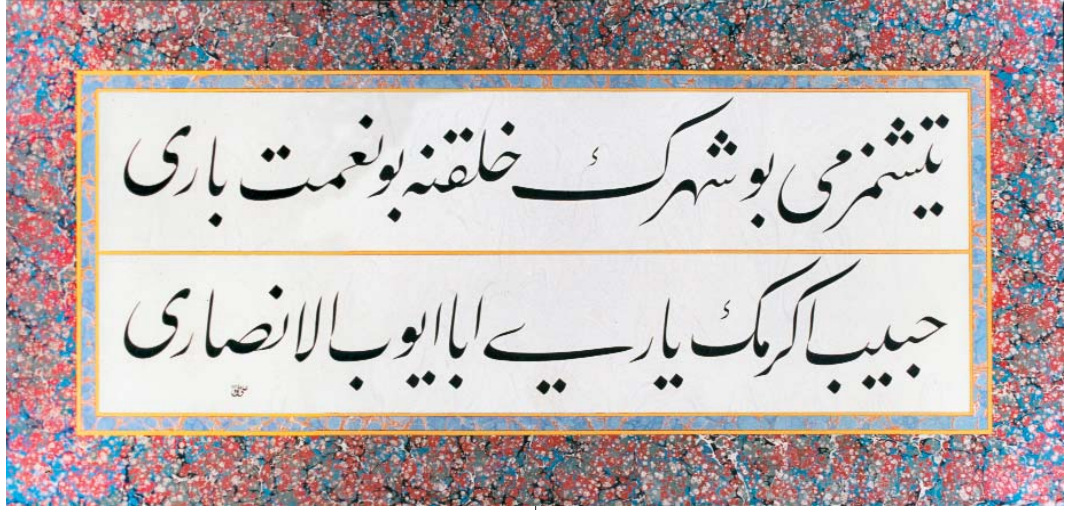 يتشمزمى بو شهرك خلقنه بو نعمت بارى
حبيب اكرمك يارى ابا ايوب الانصارى